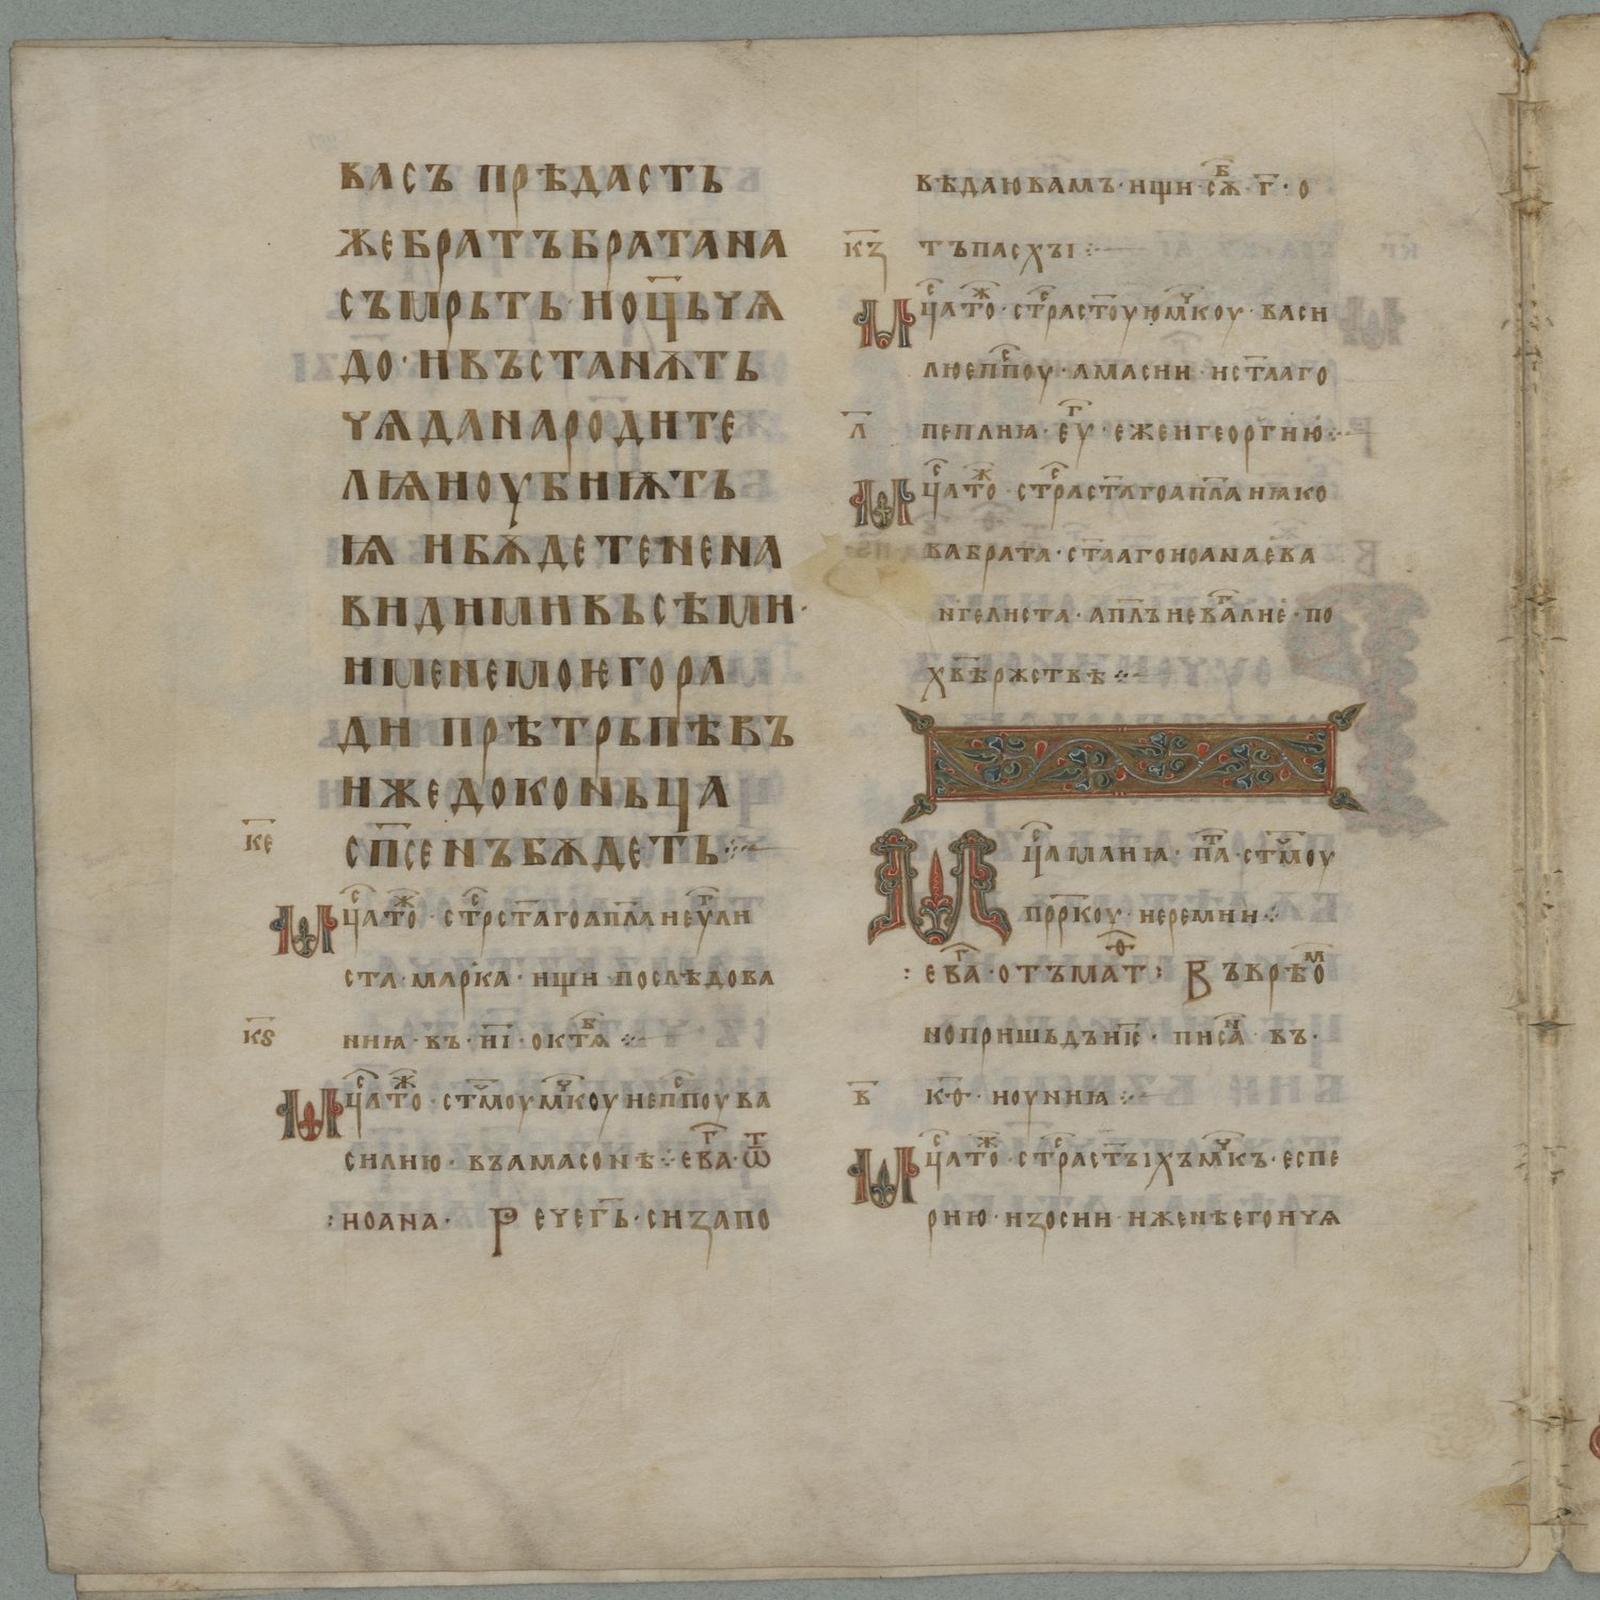 васъ прѣдасть
жебратъбратана
съмрьть· ноц҃ьчѧ
до· нвъстанѫть
чѧданародите
лѩиоубиѭть
ѩ ибѫдетененa
видимивьсѣми·
именемоѥгора
ди прѣтрьпѣвъ
ижедоконьца
к҃е
сп҃сенъбѫдеть⁘
Мц҃ато҃ж· стр҃ст҃агоап҃лаиеу҃гли
ста·марка· ищи послѣдова
к҃ѕ
ниꙗ·въ·н҃і·октѧ҃б⁘
Мц҃ато҃ж·ст҃моум҃чкоуиеп҃споува
силию· въамасонѣ⁘ев҃га·ѿ
:иоана· Речег҃ь·сиꙁапо
вѣдаювамъ·ищи·сѫ҃б·г҃·о
к҃ꙁ
тъпасхꙑ⁘
Мц҃ато҃ж·стр҃аст҃оуюм҃чкоу·васи
люеп҃споу·амасии·ист҃лаго
л҃
пеплиꙗ·еу҃г·ежеигеоргию⁘
Мц҃ато҃ж·стр҃аст҃агоап҃лаиꙗко
вабрата·ст҃лагоиоанаева
нгелиста·ап҃лъиева҃лие·по
хв҃ѣржствѣ⁘
Мц҃амаиꙗ· п҃та·ст҃моу
прр҃коу·иеремии⁘
:ев҃га·отъмат҃ѳ: Въврѣо҃м
нопришьдъиі҃с· писа҃н въ·
в҃
к·ѳ҃· ноуниꙗ⁘
Мц҃ато҃ж·стр҃астꙑхъм҃чкъ·еспе
рию·иꙁосии·иженѣегоичѧ